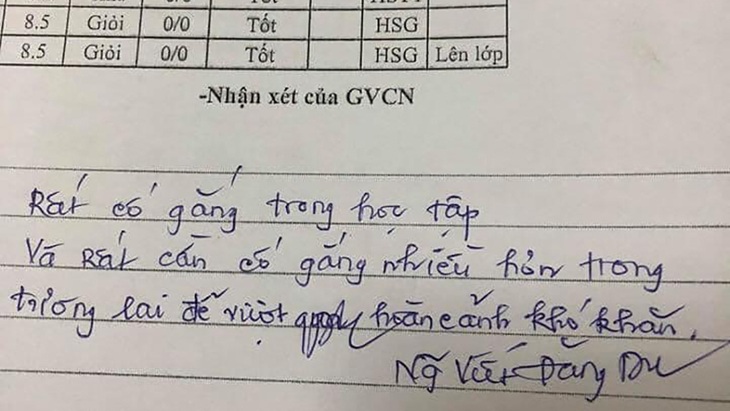 8.5 Giỏi 0/0 Tốt HSG
8.5 Giỏi 0/0 Tốt HSG Lên lớp
-Nhận xét của GVCN
Rất cố gắng trong học tập
Và Rất cần cố gắng nhiều hơn trong
tương lai để vượt qua hoàn cảnh khó khăn.
Ng Viết Đăng Du